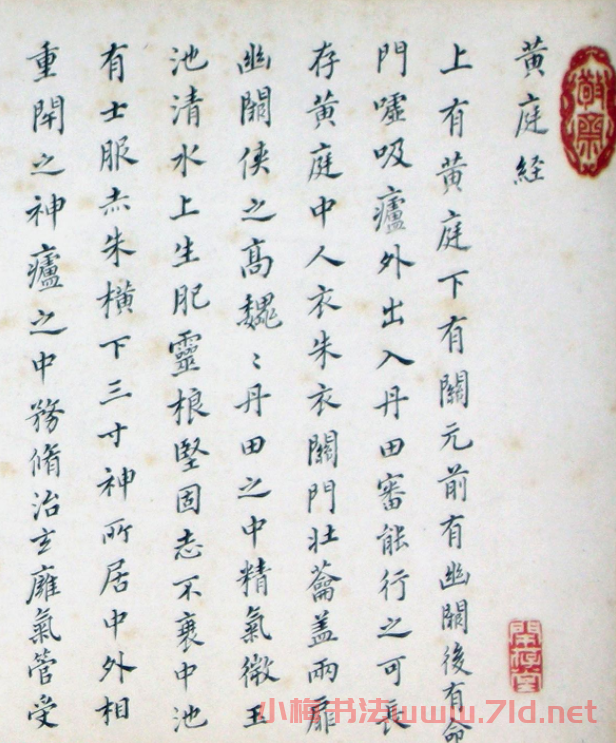 黄庭経
上有黄庭下有關元前有幽關後有命
門噓吸廬外出入丹田審能行之可長
存黄庭中人衣朱衣關門壯蘥盖兩扉
幽關俠之髙魏〻丹田之中精氣微玉
池清水上生肥靈根堅固志不衰中池
有士服赤朱橫下三寸神所居中外相
重閇之神廬之中務脩治玄廱氣管受
小梅书法www.7ld.net